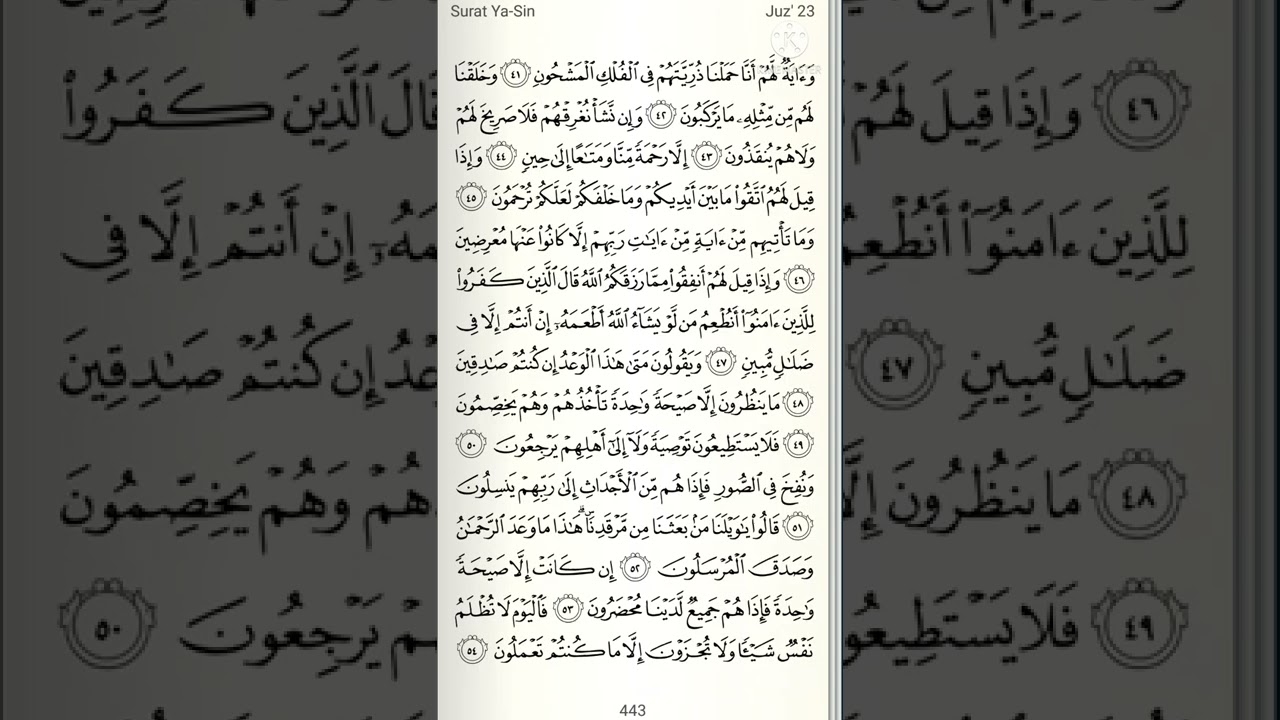 Surat Ya-Sin
Juz' 23
وَءَايَةٌ لَّهُمْ أَنَّا حَمَلْنَا ذُرِّيَّتَهُمْ فِي الْفُلْكِ الْمَشْحُونِ ٤١ وَخَلَقْنَا
لَهُم مِّن مِّثْلِهِۦ مَا يَرْكَبُونَ ٤٢ وَإِن نَّشَأْ نُغْرِقْهُمْ فَلَا صَرِيخَ لَهُمْ
وَلَا هُمْ يُنقَذُونَ ٤٣ إِلَّا رَحْمَةً مِّنَّا وَمَتَٰعًا إِلَىٰ حِينٍ ٤٤ وَإِذَا
قِيلَ لَهُمُ اتَّقُوا۟ مَا بَيْنَ أَيْدِيكُمْ وَمَا خَلْفَكُمْ لَعَلَّكُمْ تُرْحَمُونَ ٤٥
وَمَا تَأْتِيهِم مِّنْ ءَايَةٍ مِّنْ ءَايَٰتِ رَبِّهِمْ إِلَّا كَانُوا۟ عَنْهَا مُعْرِضِينَ
٤٦ وَإِذَا قِيلَ لَهُمْ أَنفِقُوا۟ مِمَّا رَزَقَكُمُ اللَّهُ قَالَ الَّذِينَ كَفَرُوا۟
لِلَّذِينَ ءَامَنُوٓا۟ أَنُطْعِمُ مَن لَّوْ يَشَآءُ اللَّهُ أَطْعَمَهُۥٓ إِنْ أَنتُمْ إِلَّا فِي
ضَلَٰلٍ مُّبِينٍ ٤٧ وَيَقُولُونَ مَتَىٰ هَٰذَا الْوَعْدُ إِن كُنتُمْ صَٰدِقِينَ
٤٨ مَا يَنظُرُونَ إِلَّا صَيْحَةً وَٰحِدَةً تَأْخُذُهُمْ وَهُمْ يَخِصِّمُونَ
٤٩ فَلَا يَسْتَطِيعُونَ تَوْصِيَةً وَلَآ إِلَىٰٓ أَهْلِهِمْ يَرْجِعُونَ ٥٠
وَنُفِخَ فِي الصُّورِ فَإِذَا هُم مِّنَ الْأَجْدَاثِ إِلَىٰ رَبِّهِمْ يَنسِلُونَ
٥١ قَالُوا۟ يَٰوَيْلَنَا مَنۢ بَعَثَنَا مِن مَّرْقَدِنَا ۜ ۗ هَٰذَا مَا وَعَدَ الرَّحْمَٰنُ
وَصَدَقَ الْمُرْسَلُونَ ٥٢ إِن كَانَتْ إِلَّا صَيْحَةً
وَٰحِدَةً فَإِذَا هُمْ جَمِيعٌ لَّدَيْنَا مُحْضَرُونَ ٥٣ فَالْيَوْمَ لَا تُظْلَمُ
نَفْسٌ شَيْـًٔا وَلَا تُجْزَوْنَ إِلَّا مَا كُنتُمْ تَعْمَلُونَ ٥٤
443